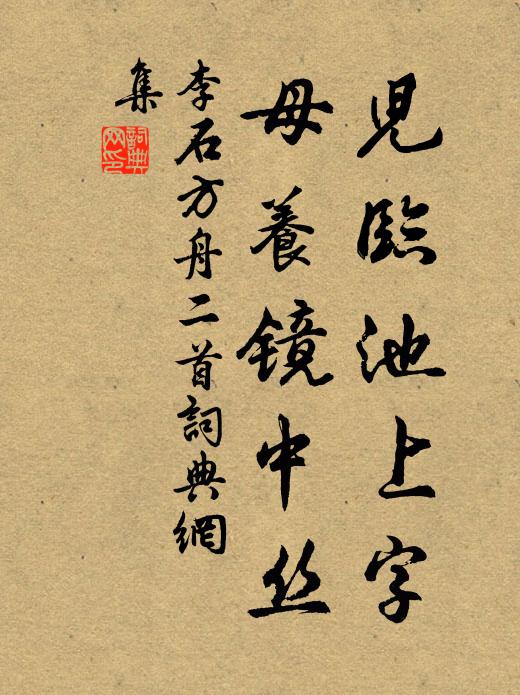 兒臨池上字
母養鏡中丝
李石方舟二首詞典網
集
詞典
网印